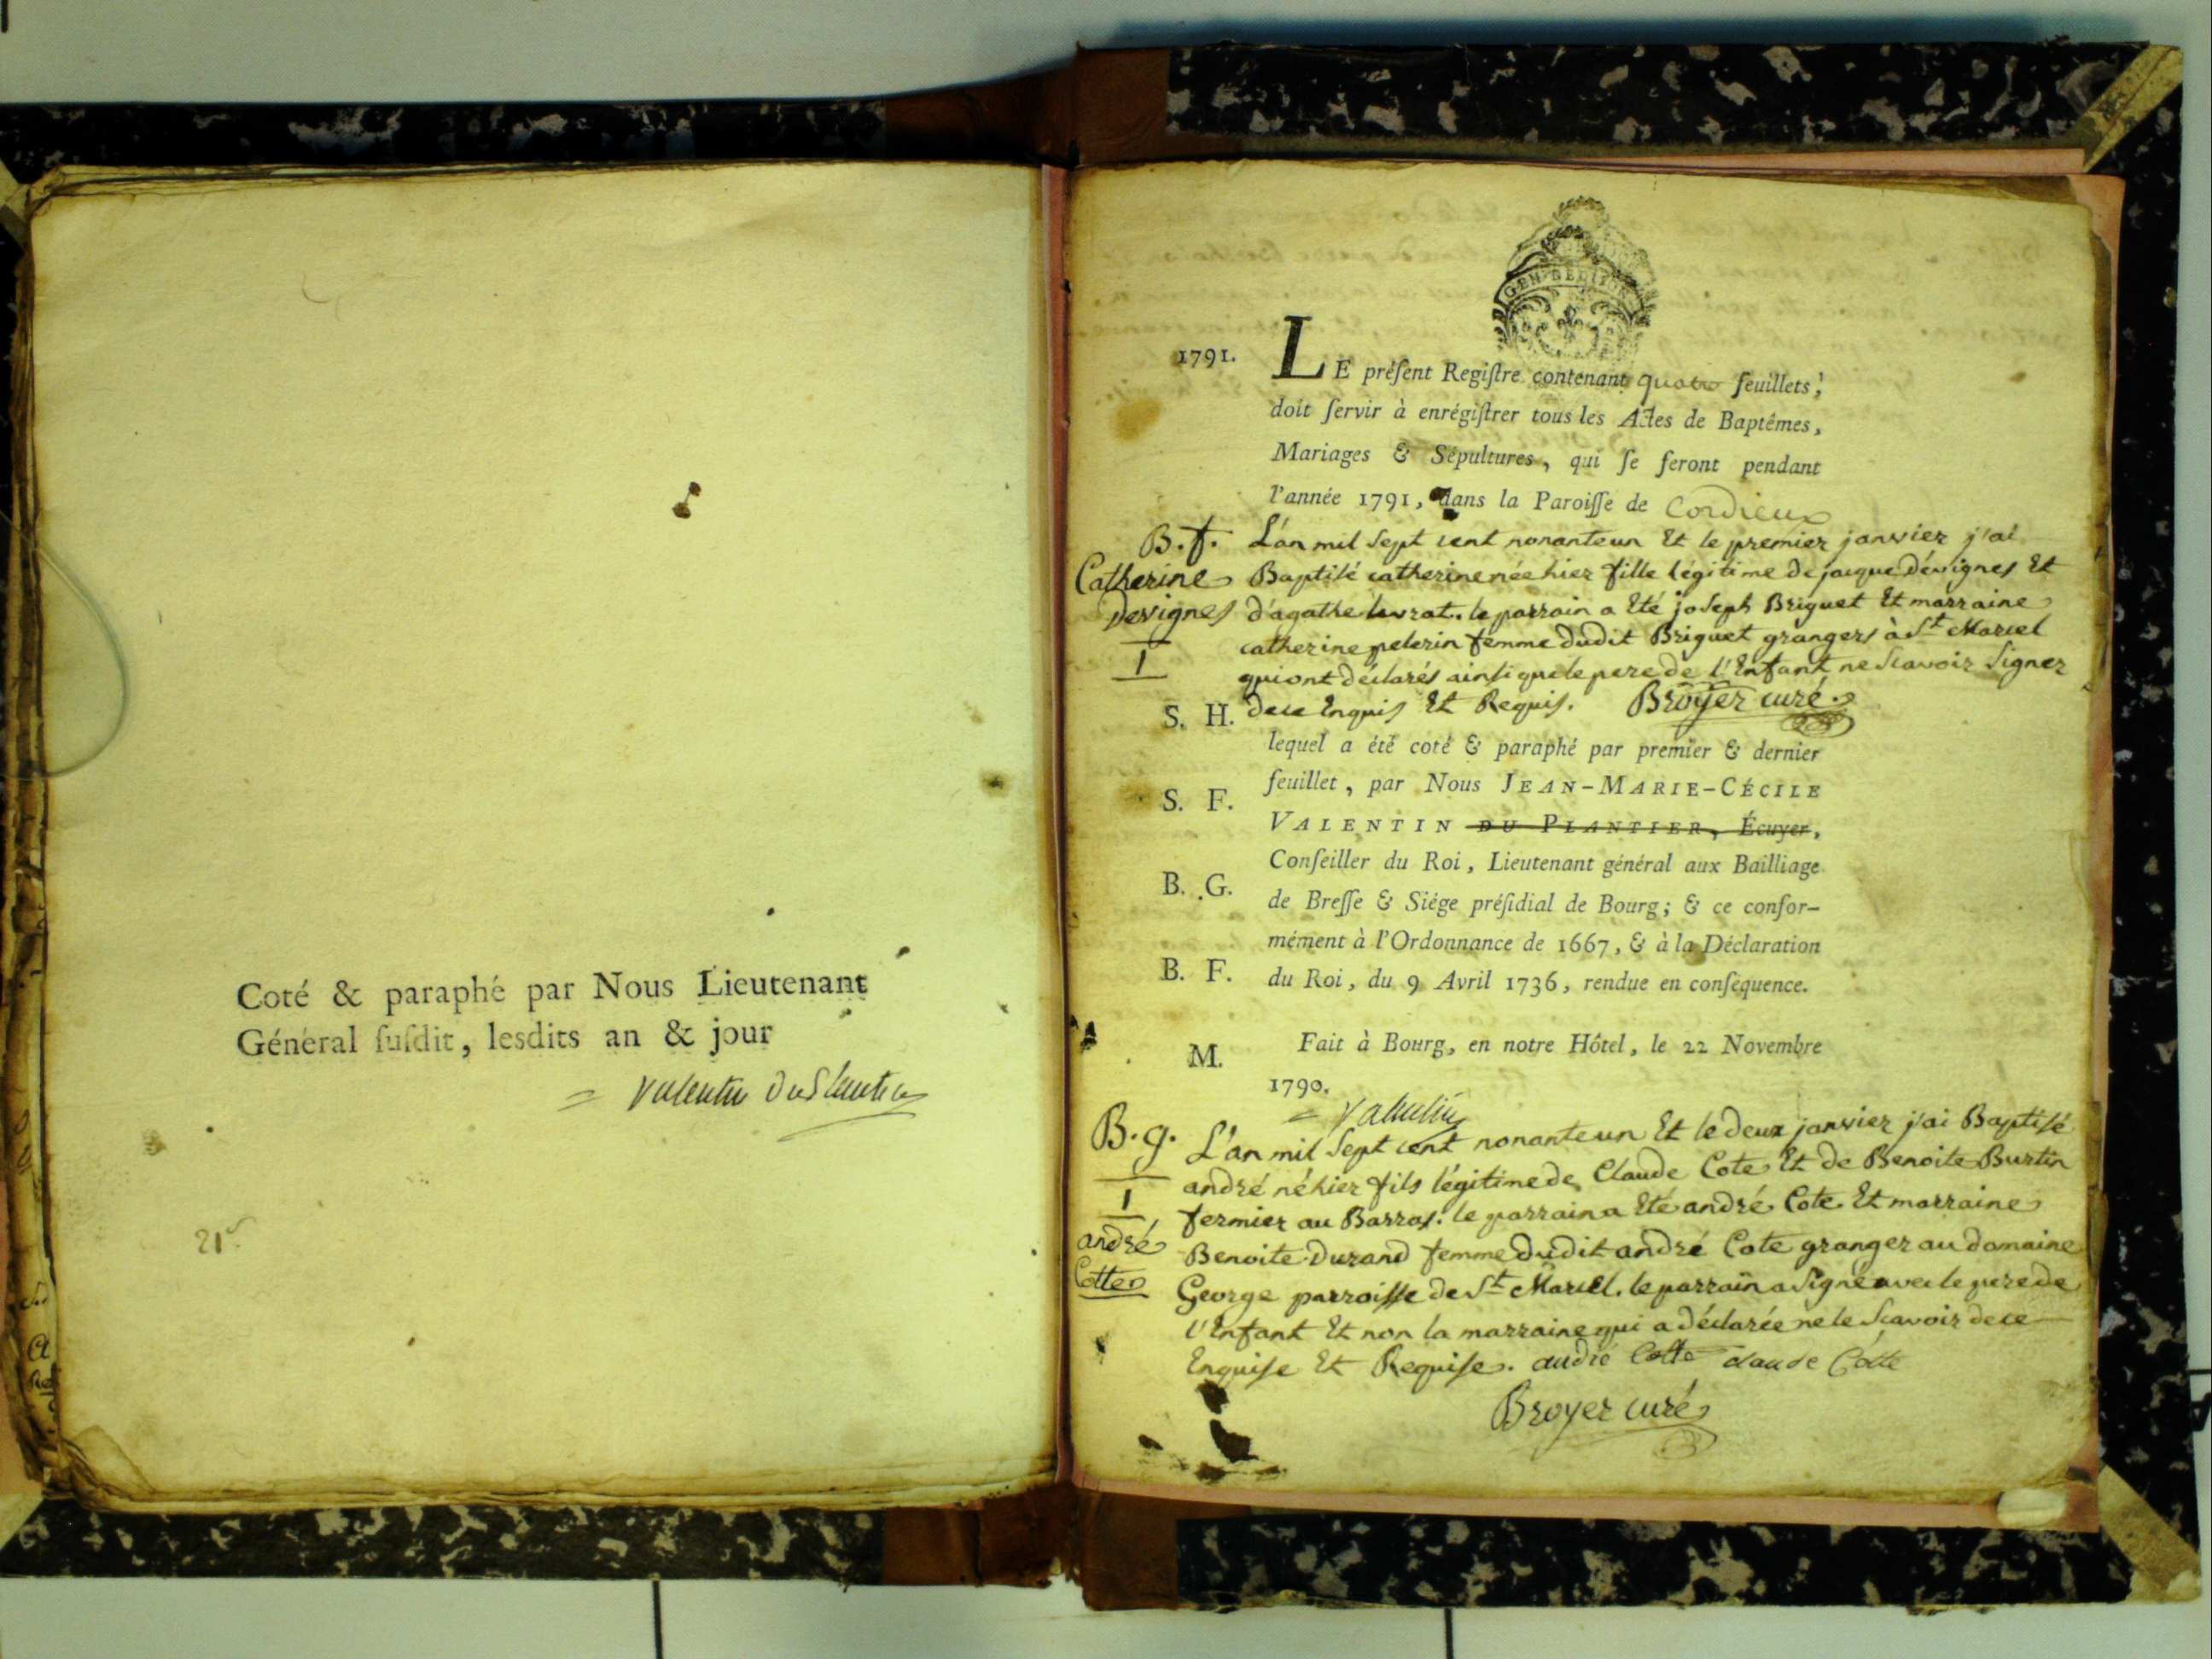 Coté & paraphé par Nous Lieutenant
Général ſuſdit, leſdits an & jour
= Valentin DuPlantier
21
GEN DE DIJON
1791.
LE préſent Regiſtre contenant quatre feuillets,
doit ſervir à enrégiſtrer tous les Actes de Baptêmes,
Mariages & Sépultures, qui ſe feront pendant
l'année 1791, dans la Paroiſſe de Cordieux
B. f.
Catherine
Devignes
1
L'an mil Sept cent nonanteun Et le premier janvier j'ai
Baptisé catherine née hier fille légitime de jacque Dévignes Et
d'agathe levrat. le parrain a Eté joseph Briguet Et marraine
catherine pelerin femme dudit Briguet grangers à St Marcel
qui ont déclarés ainsi que le pere de l'Enfant ne Scavoir Signer
de ce Enquis Et Requis. Broyer curé.
S. H.
S. F.
B. G.
B. F.
M.
lequel a été coté & paraphé par premier & dernier
feuillet, par Nous JEAN-MARIE-CÉCILE
VALENTIN DU PLANTIER, Écuyer,
Conſeiller du Roi, Lieutenant général aux Bailliage
de Breſſe & Siége préſidial de Bourg; & ce confor-
mément à l'Ordonnance de 1667, & à la Déclaration
du Roi, du 9 Avril 1736, rendue en conſéquence.
Fait à Bourg, en notre Hôtel, le 22 Novembre
1790.
= Valentin
B. g.
1
andré
Cotte
L'an mil Sept cent nonanteun Et le deux janvier j'ai Baptisé
andré né hier fils légitime de Claude Cote Et de Benoite Burtin
fermier au Barras. le parrain a Eté andré Cote Et marraine
Benoite Durand femme dudit andré Cote granger au domaine
George parroisse de St Marcel. le parrain a signé avec le pere de
l'Enfant Et non la marraine qui a déclarée ne le Scavoir de ce
Enquise Et Requise. andré Cotte claude Cotte
Broyer curé